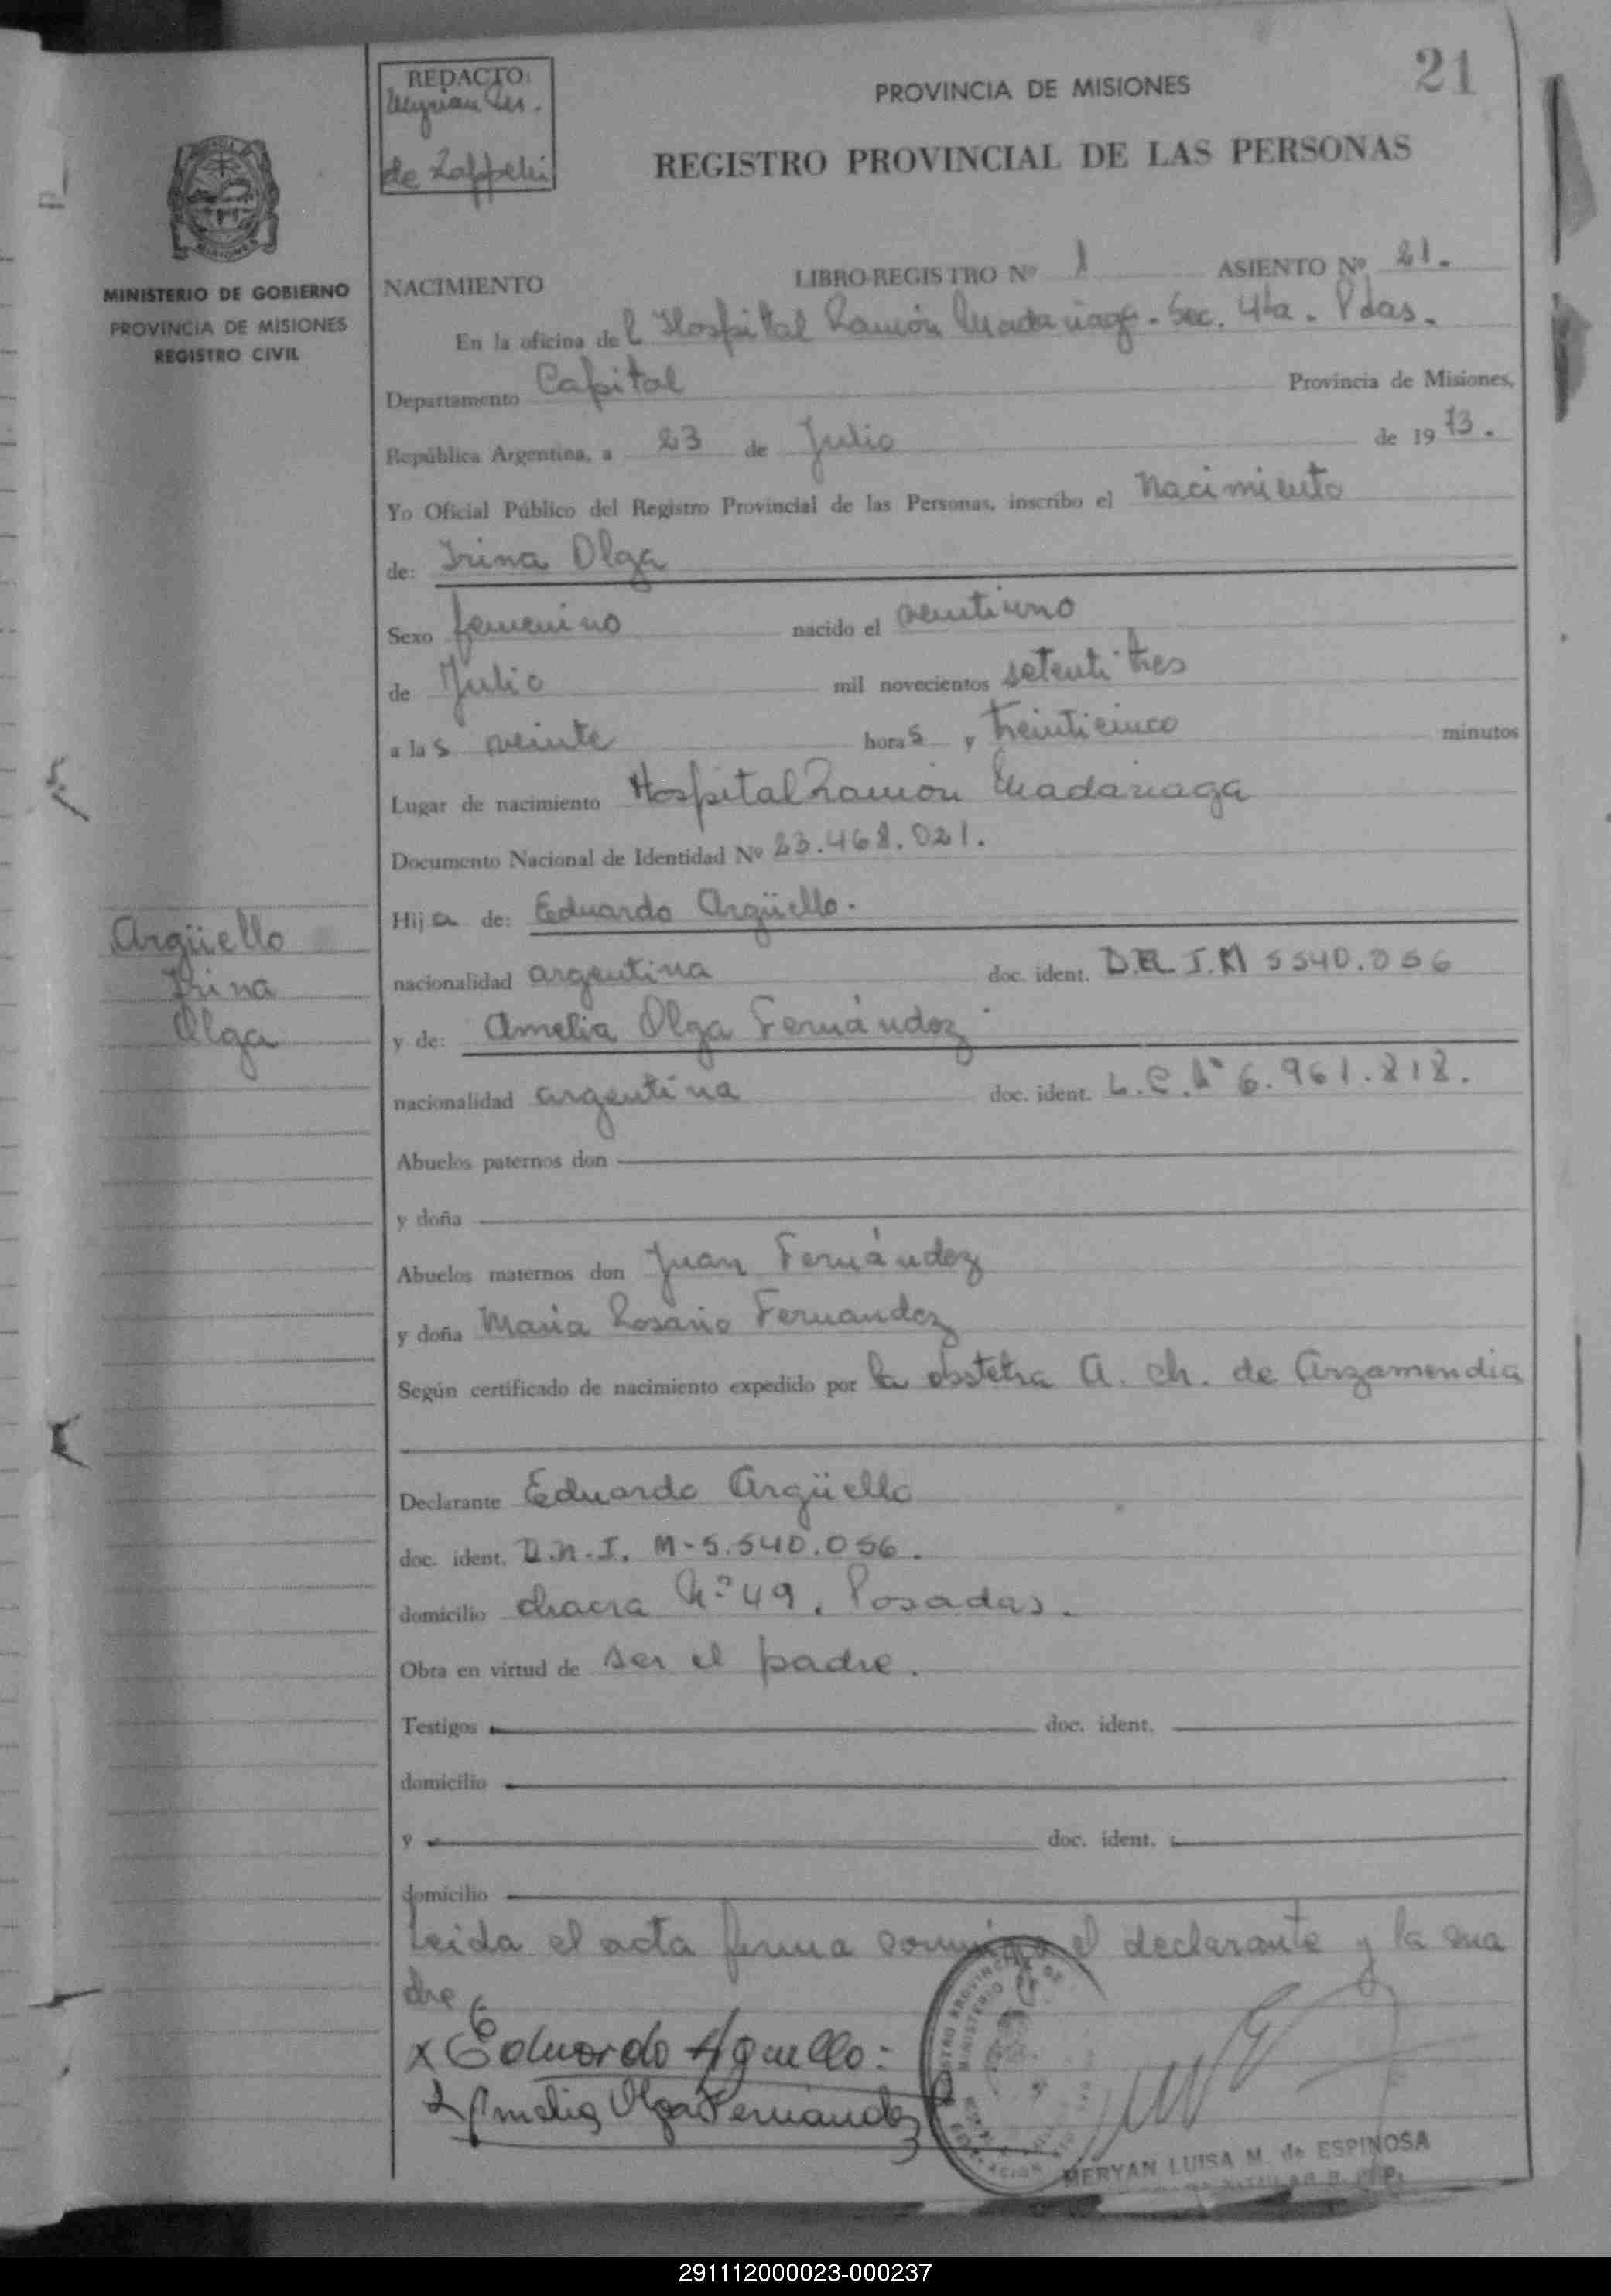 21
REDACTO:
de Zappelli
PROVINCIA DE MISIONES
REGISTRO PROVINCIAL DE LAS PERSONAS
MINISTERIO DE GOBIERNO
PROVINCIA DE MISIONES
REGISTRO CIVIL
NACIMIENTO LIBRO-REGISTRO Nº 1 ASIENTO Nº 21.
En la oficina del Hospital Ramón Madariaga - Sec. 4ta. Pdas.
Departamento Capital Provincia de Misiones,
República Argentina, a 23 de Julio de 1973.
Yo Oficial Público del Registro Provincial de las Personas, inscribo el Nacimiento
de: Irina Olga
Sexo femenino nacido el veintiuno
de Julio mil novecientos setentitres
a las veinte horas y treinticinco minutos
Lugar de nacimiento Hospital Ramón Madariaga
Documento Nacional de Identidad Nº 23.468.021.
Hija de: Eduardo Argüello.
Argüello
Irina
Olga
nacionalidad argentina doc. ident. D.N.I. M 5540.056
y de: Amelia Olga Fernández
nacionalidad argentina doc. ident. L.C. Nº 6.961.818.
Abuelos paternos don
y doña
Abuelos maternos don Juan Fernández
y doña Maria Rosario Fernandez
Según certificado de nacimiento expedido por la obstetra A. Ch. de Arzamendia
Declarante Eduardo Argüello
doc. ident. D.N.I. M-5.540.056.
domicilio chacra Nº 49. Posadas.
Obra en virtud de ser el padre.
Testigos doc. ident.
domicilio
y doc. ident.
domicilio
Leida el acta firma conmigo el declarante y la ma
dre
x Eduardo Arguello:
x Amelia Olga Fernández
MERYAN LUISA M. de ESPINOSA
291112000023-000237